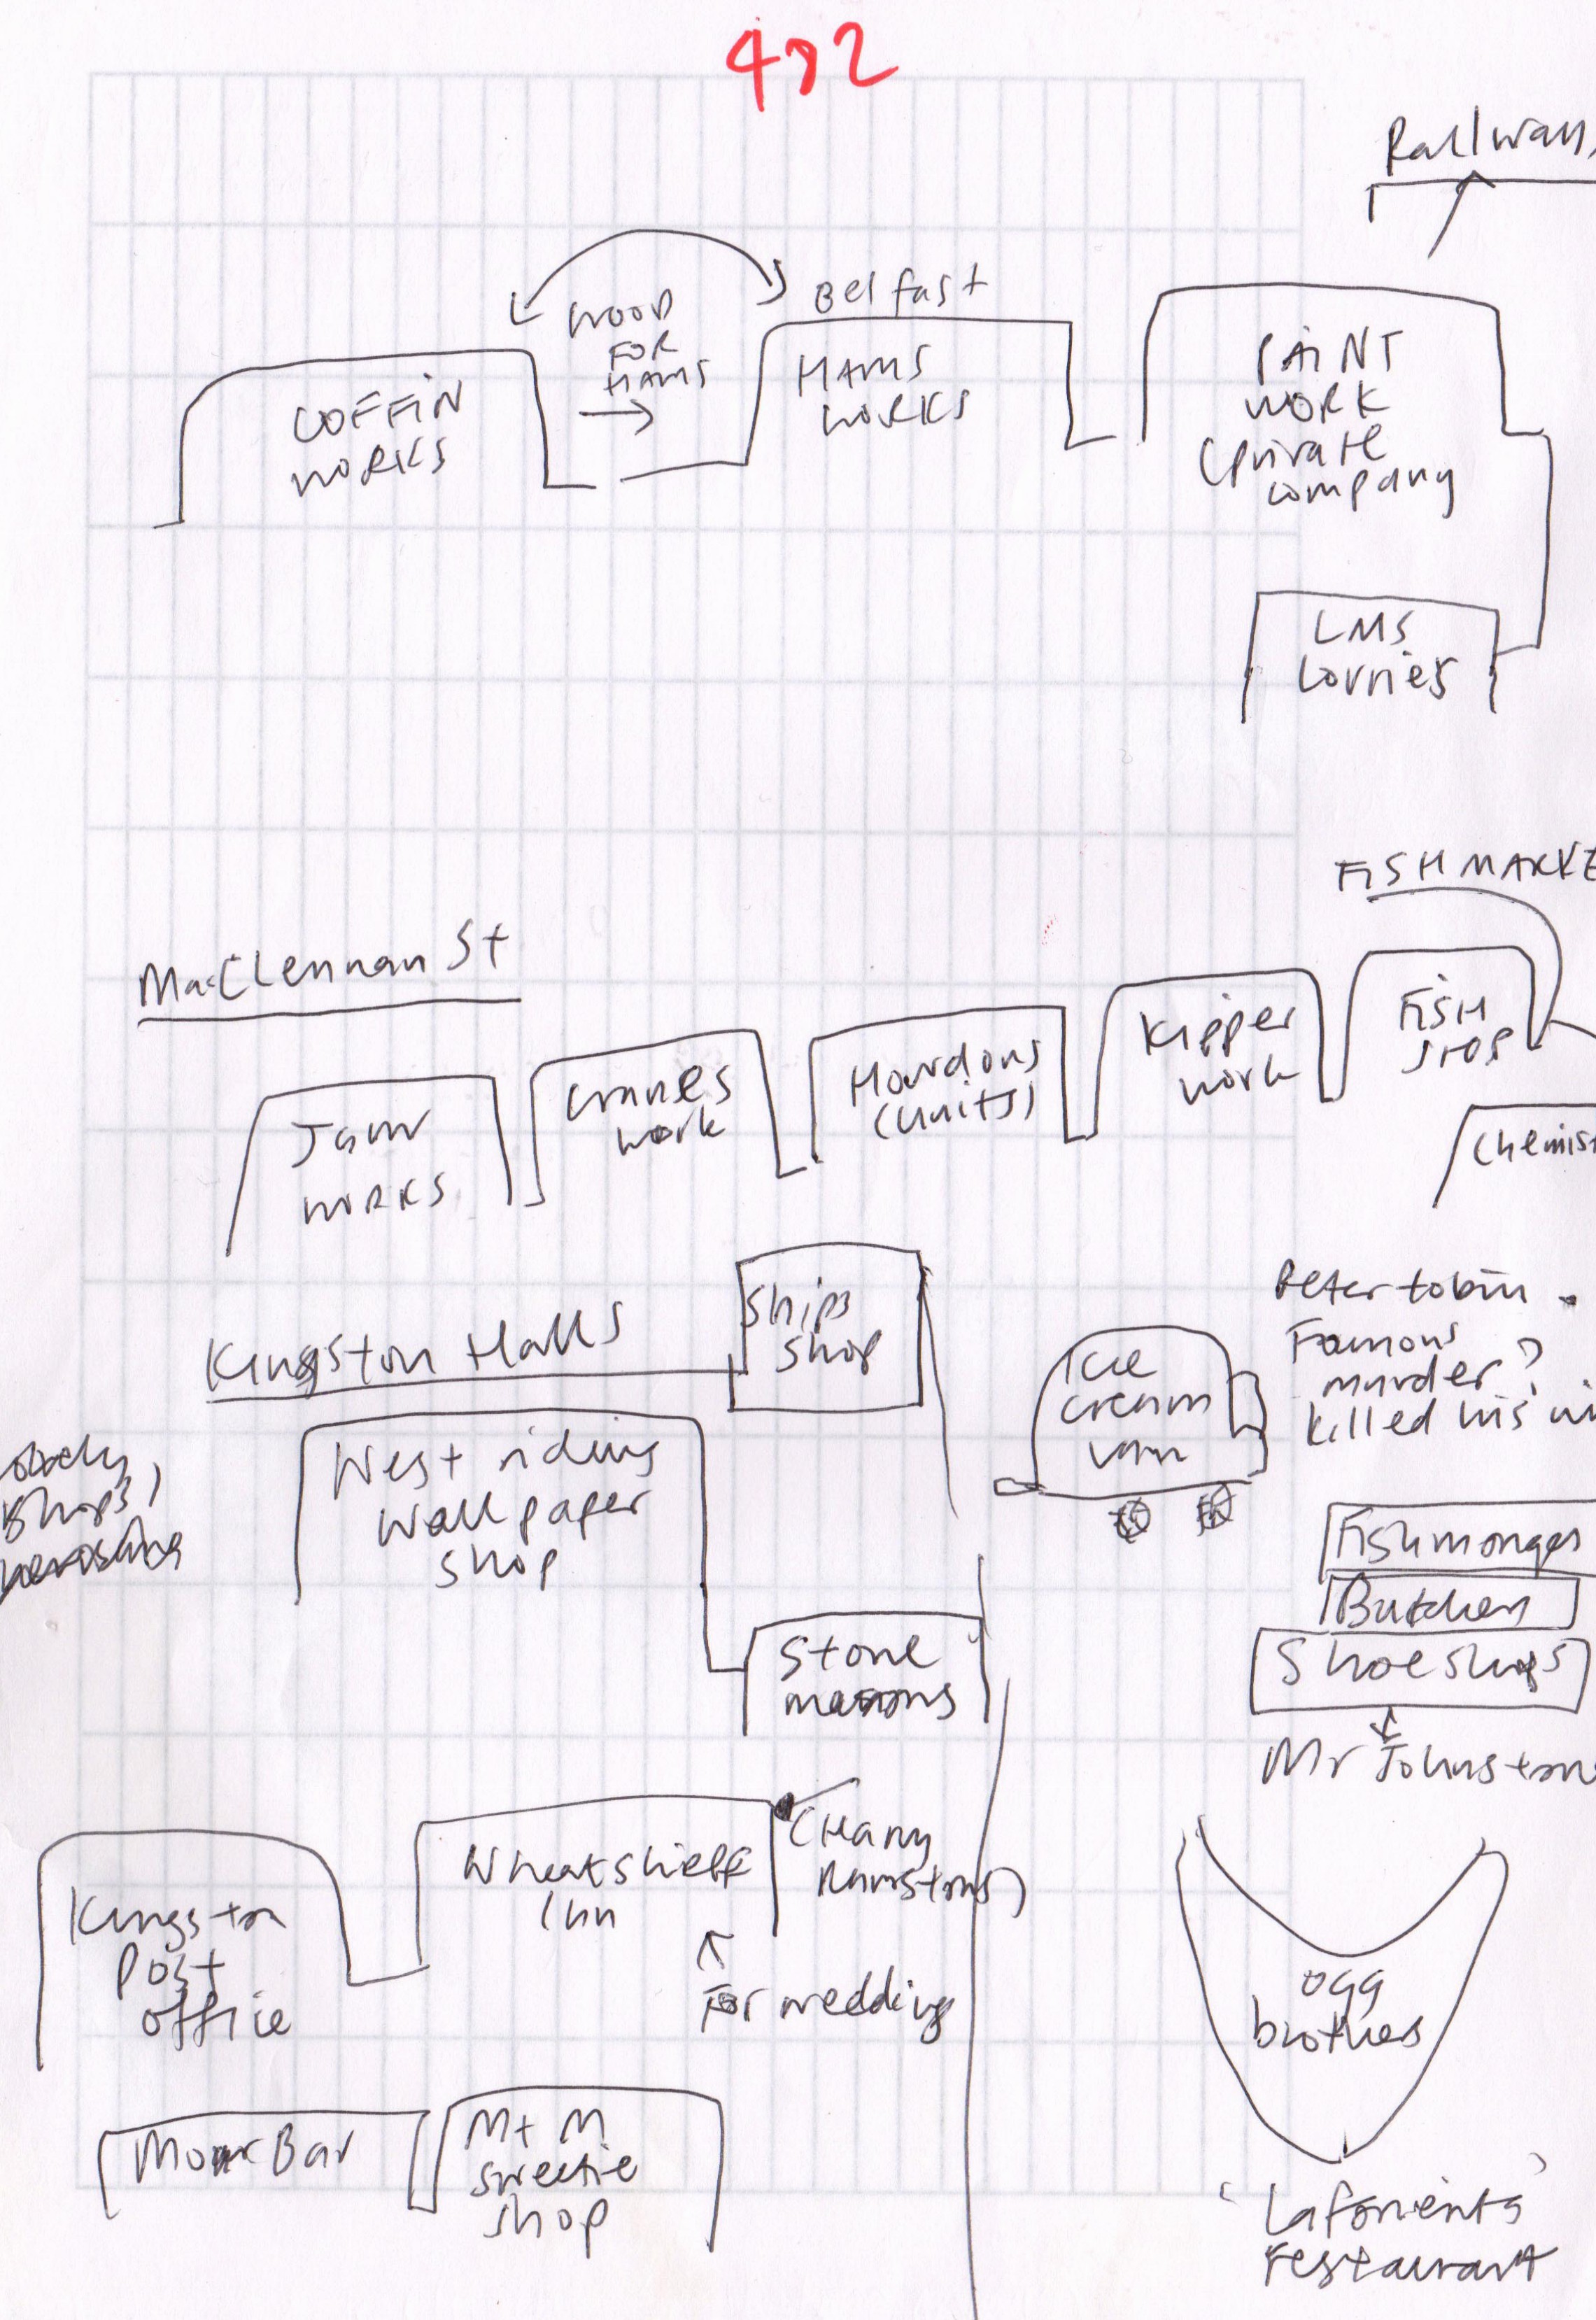 432
Railway
Belfast
WOOD
FOR
HAMS
COFFIN
WORKS
HAMS
WORKS
PAINT
WORK
(private
company
LMS
Lorries
FISH MARKE
MacClennan St
Jam
WORKS
Cranes
work
(units)
Kipper
work
FISH
SHOP
Chemist
Kingston Halls
Ships
shop
Ice
cream
van
Peter tobin -
Famous
murder?
killed his wi
West riding
Wallpaper
shop
Stone
masons
Fishmonger
Butchers
Shoe shops
Mr Johnstons
Kingston
Post
office
Wheatshieff
Inn
(Harry
Ramstons)
For wedding
Ogg
brothers
Bar
M+M
sweetie
shop
restaurant